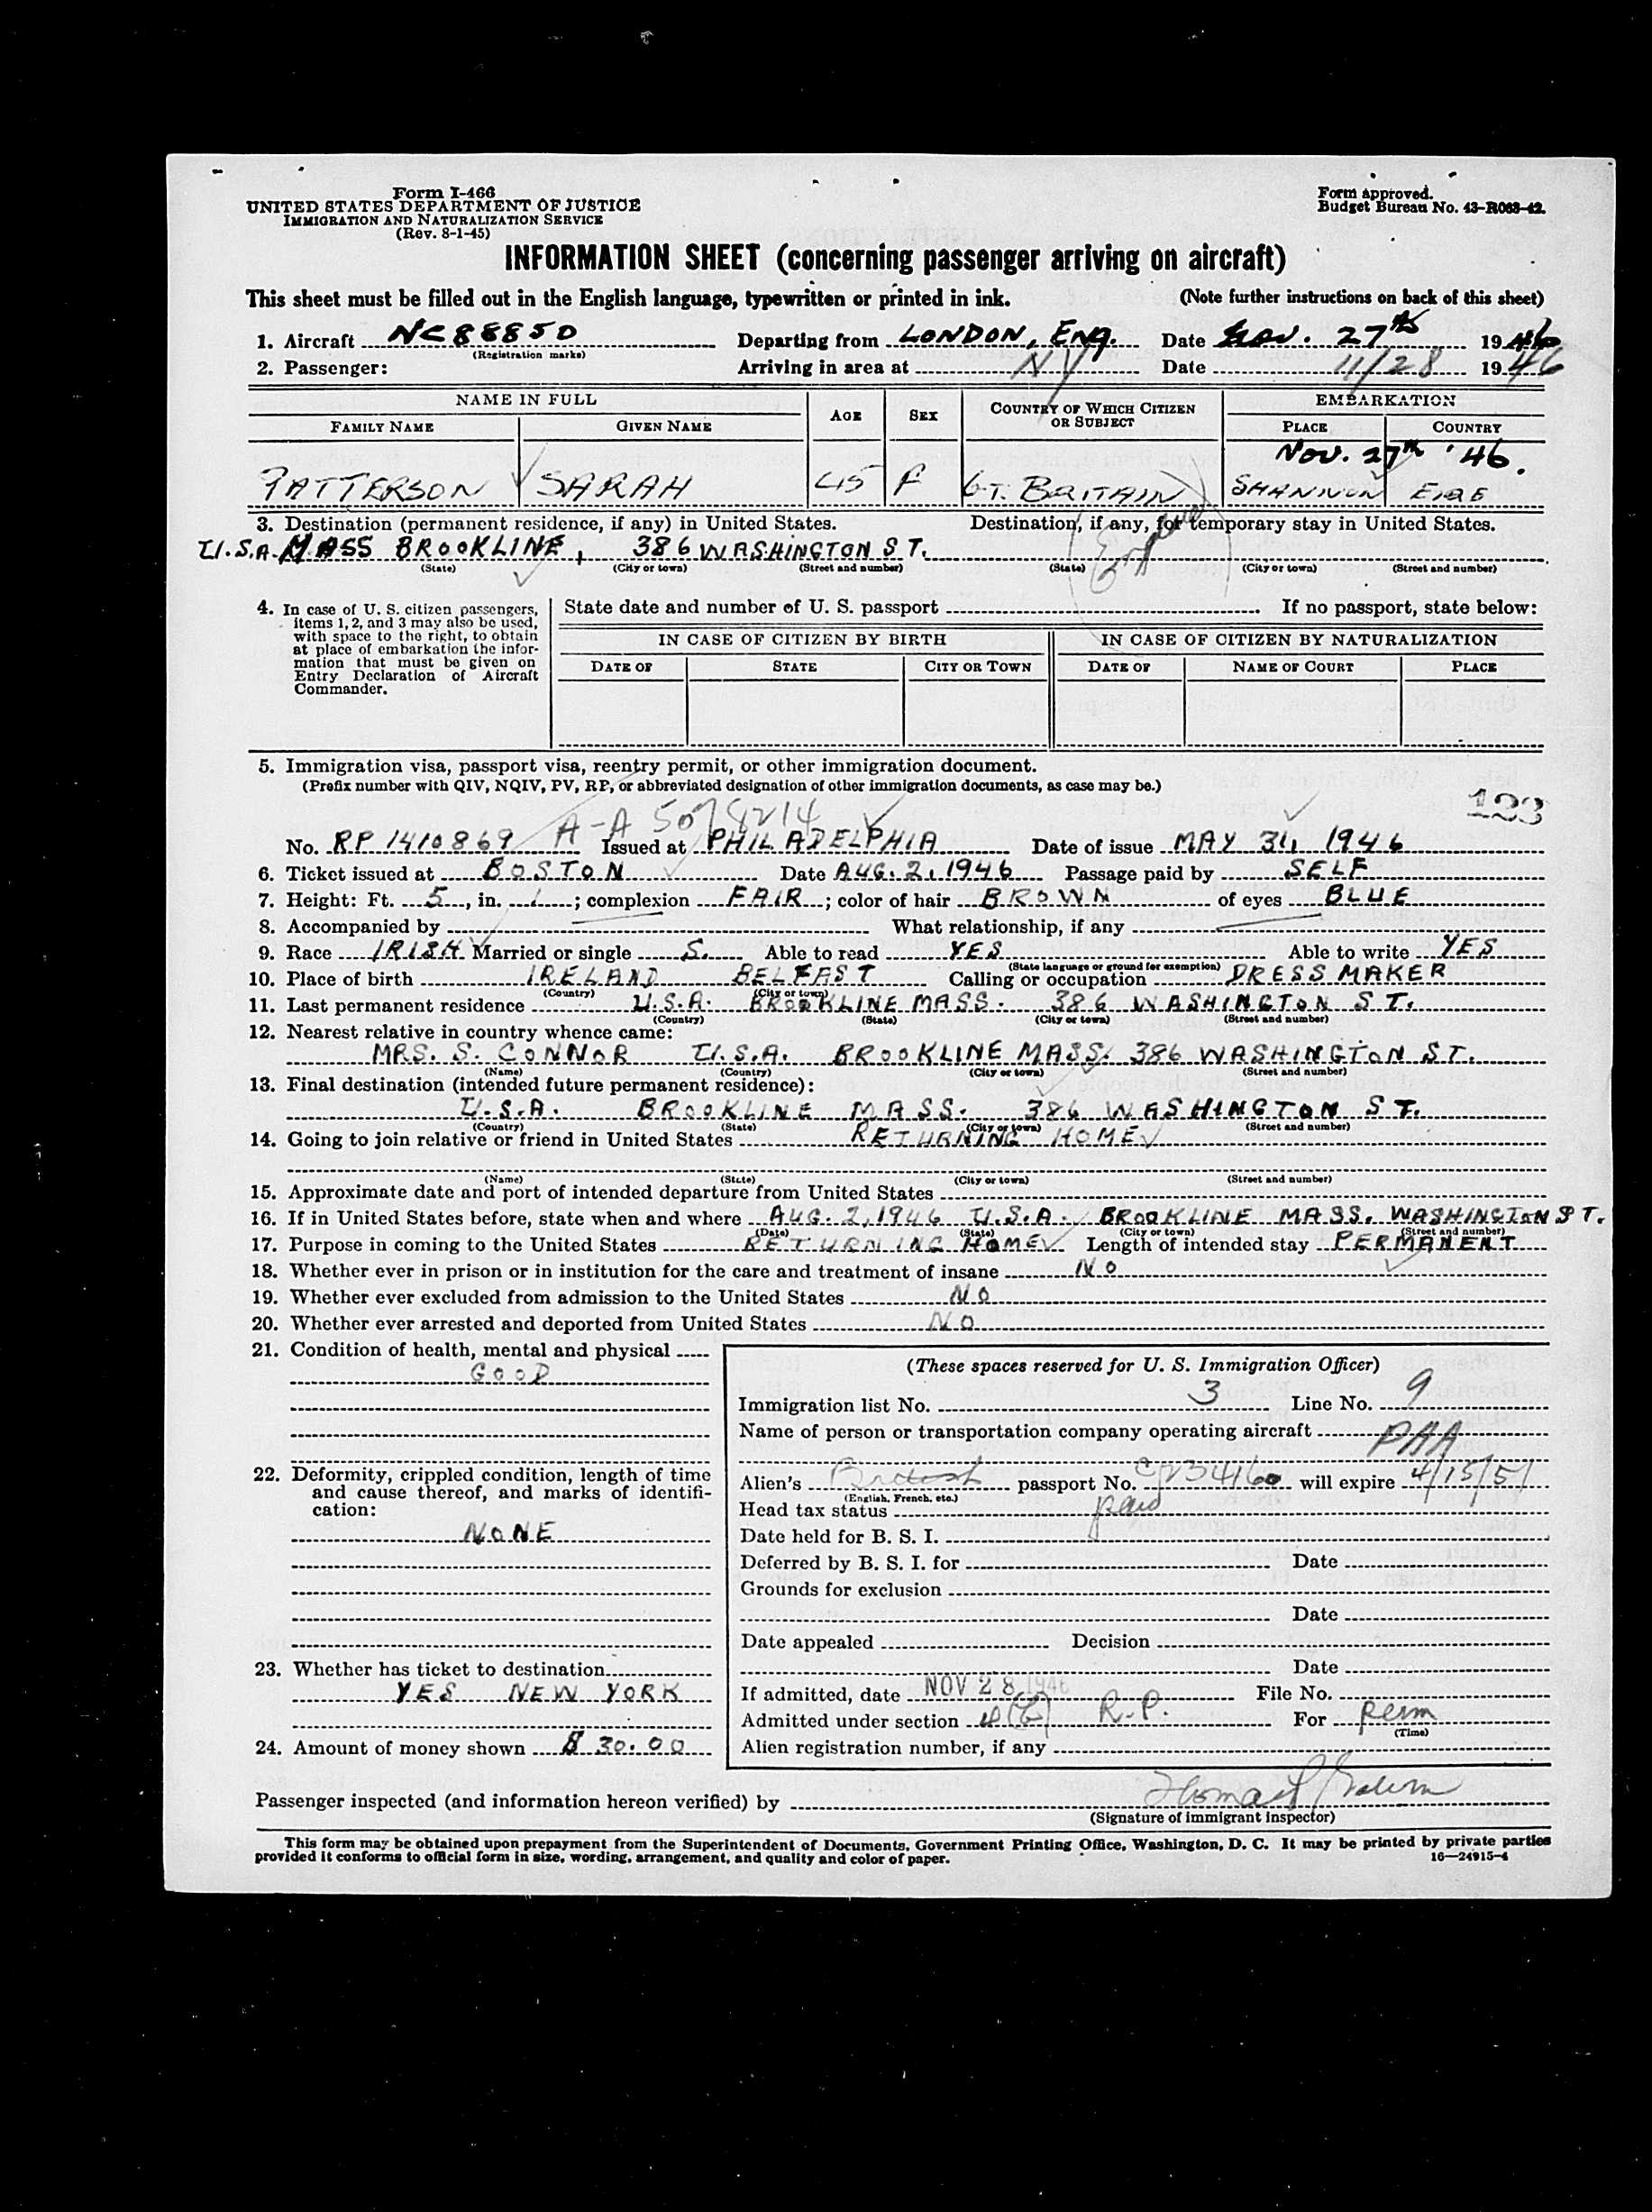 Form I-466
UNITED STATES DEPARTMENT OF JUSTICE
IMMIGRATION AND NATURALIZATION SERVICE
(Rev. 8-1-45)
Form approved.
Budget Bureau No. 43-R063-42.
INFORMATION SHEET (concerning passenger arriving on aircraft)
This sheet must be filled out in the English language, typewritten or printed in ink. (Note further instructions on back of this sheet)
1. Aircraft NC88850 Departing from LONDON, ENG. Date NOV. 27th 1946
(Registration marks)
2. Passenger: Arriving in area at NY Date 11/28 1946
NAME IN FULL AGE SEX COUNTRY OF WHICH CITIZEN OR SUBJECT EMBARKATION
FAMILY NAME GIVEN NAME PLACE COUNTRY
NOV. 27th '46.
PATTERSON SARAH 45 F GT. BRITAIN SHANNON EIRE
3. Destination (permanent residence, if any) in United States. Destination, if any, for temporary stay in United States.
U.S.A. MASS BROOKLINE, 386 WASHINGTON ST.
(State) (City or town) (Street and number) (State) (City or town) (Street and number)
4. In case of U. S. citizen passengers, items 1, 2, and 3 may also be used, with space to the right, to obtain at place of embarkation the information that must be given on Entry Declaration of Aircraft Commander.
State date and number of U. S. passport If no passport, state below:
IN CASE OF CITIZEN BY BIRTH IN CASE OF CITIZEN BY NATURALIZATION
DATE OF STATE CITY OR TOWN DATE OF NAME OF COURT PLACE
5. Immigration visa, passport visa, reentry permit, or other immigration document.
(Prefix number with QIV, NQIV, PV, RP, or abbreviated designation of other immigration documents, as case may be.)
123
A-A 5078214
No. RP 1410869 Issued at PHILADELPHIA Date of issue MAY 31, 1946
6. Ticket issued at BOSTON Date AUG. 2, 1946 Passage paid by SELF
7. Height: Ft. 5, in. 1; complexion FAIR; color of hair BROWN of eyes BLUE
8. Accompanied by What relationship, if any
9. Race IRISH Married or single S. Able to read YES Able to write YES
(State language or ground for exemption)
10. Place of birth IRELAND BELFAST Calling or occupation DRESS MAKER
(Country) (City or town)
11. Last permanent residence U.S.A. BROOKLINE MASS. 386 WASHINGTON ST.
(Country) (State) (City or town) (Street and number)
12. Nearest relative in country whence came:
MRS. S. CONNOR U.S.A. BROOKLINE MASS. 386 WASHINGTON ST.
(Name) (Country) (City or town) (Street and number)
13. Final destination (intended future permanent residence):
U.S.A. BROOKLINE MASS. 386 WASHINGTON ST.
(Country) (State) (City or town) (Street and number)
14. Going to join relative or friend in United States RETURNING HOME
(Name) (State) (City or town) (Street and number)
15. Approximate date and port of intended departure from United States
16. If in United States before, state when and where AUG. 2, 1946 U.S.A. BROOKLINE MASS. WASHINGTON ST.
(Date) (State) (City or town) (Street and number)
17. Purpose in coming to the United States RETURNING HOME Length of intended stay PERMANENT
18. Whether ever in prison or in institution for the care and treatment of insane NO
19. Whether ever excluded from admission to the United States NO
20. Whether ever arrested and deported from United States NO
21. Condition of health, mental and physical
GOOD
22. Deformity, crippled condition, length of time and cause thereof, and marks of identification:
NONE
23. Whether has ticket to destination
YES NEW YORK
24. Amount of money shown $ 30.00
(These spaces reserved for U. S. Immigration Officer)
Immigration list No. 3 Line No. 9
Name of person or transportation company operating aircraft PAA
Alien's British passport No. will expire 4/15/51
(English, French, etc.)
Head tax status paid
Date held for B. S. I.
Deferred by B. S. I. for Date
Grounds for exclusion
Date
Date appealed Decision
Date
If admitted, date NOV 28 1946 File No.
Admitted under section 4(b) R.P. For Perm
(Time)
Alien registration number, if any
Passenger inspected (and information hereon verified) by
(Signature of immigrant inspector)
This form may be obtained upon prepayment from the Superintendent of Documents, Government Printing Office, Washington, D. C. It may be printed by private parties
provided it conforms to official form in size, wording, arrangement, and quality and color of paper. 16—24915-4